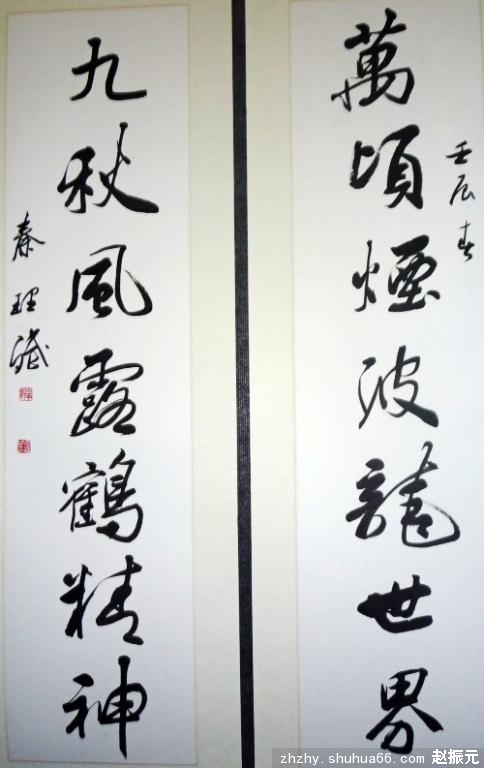 萬頃煙波龍世界
壬辰春
九秋風露鶴精神
秦理斌
zhzhy.shuhua66.com 赵振元